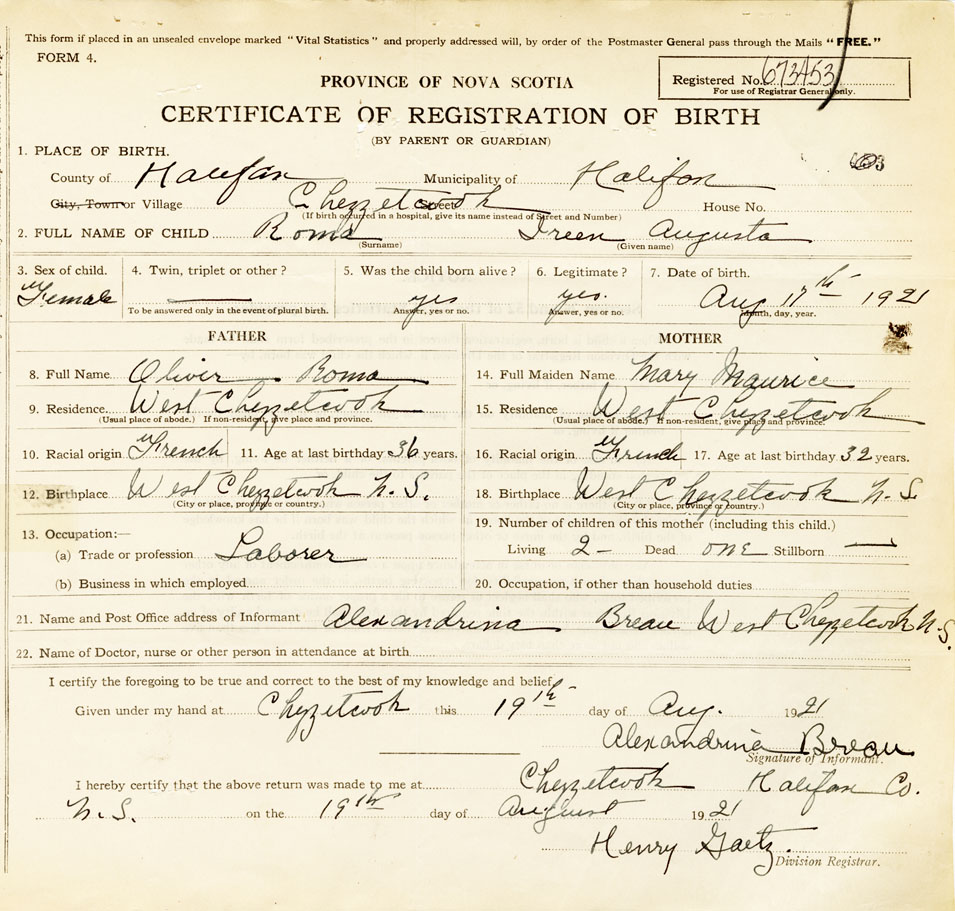 This form if placed in an unsealed envelope marked "Vital Statistics" and properly addressed will, by order of the Postmaster General pass through the Mails "FREE."
FORM 4.
PROVINCE OF NOVA SCOTIA
Registered No. 673453
For use of Registrar General only.
CERTIFICATE OF REGISTRATION OF BIRTH
(BY PARENT OR GUARDIAN)
1. PLACE OF BIRTH.
County of Halifax Municipality of Halifax
City, Town or Village Chezzetcook Street House No.
(If birth occurred in a hospital, give its name instead of Street and Number)
2. FULL NAME OF CHILD Roma Ireen Augusta
(Surname) (Given name)
3. Sex of child. 4. Twin, triplet or other? 5. Was the child born alive? 6. Legitimate? 7. Date of birth.
Female — yes yes. Aug 17th 1921
To be answered only in the event of plural birth. Answer, yes or no. Answer, yes or no. Month, day, year.
FATHER MOTHER
8. Full Name Olivir Roma 14. Full Maiden Name Mary Maurice
9. Residence. West Chezzetcook 15. Residence West Chezzetcook
(Usual place of abode.) If non-resident, give place and province. (Usual place of abode.) If non-resident, give place and province.
10. Racial origin French 11. Age at last birthday 36 years. 16. Racial origin French 17. Age at last birthday 32 years.
12. Birthplace West Chezzetcook N.S. 18. Birthplace West Chezzetcook N.S.
(City or place, province or country.) (City or place, province or country.)
13. Occupation:— 19. Number of children of this mother (including this child.)
(a) Trade or profession Laborer Living 2 - Dead one Stillborn —
(b) Business in which employed 20. Occupation, if other than household duties
21. Name and Post Office address of Informant Alexandrina Breau West Chezzetcook N.S.
22. Name of Doctor, nurse or other person in attendance at birth
I certify the foregoing to be true and correct to the best of my knowledge and belief.
Given under my hand at Chezzetcook this 19th day of Aug. 1921
Alexandrina Breau
Signature of Informant.
I hereby certify that the above return was made to me at Chezzetcook Halifax Co.
N.S. on the 19th day of August 1921
Henry Gaetz.
Division Registrar.